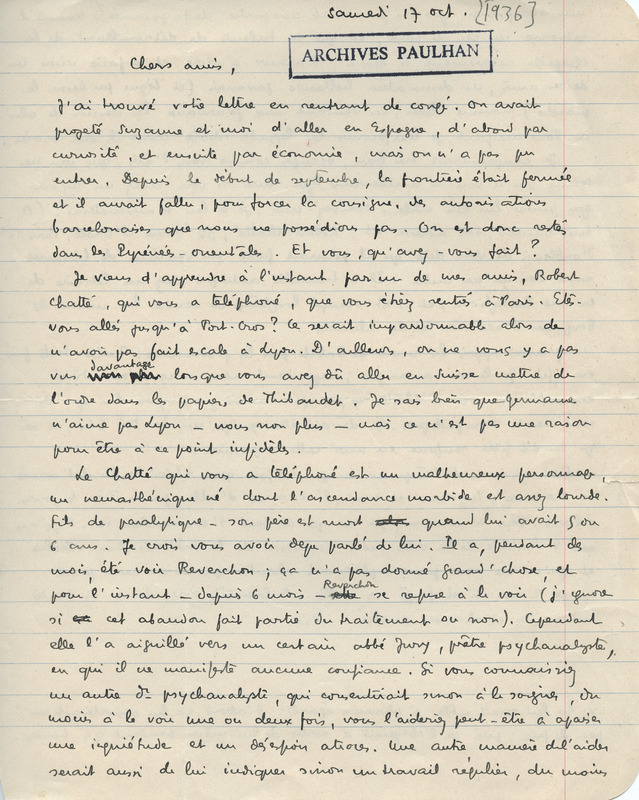 Samedi 17 oct. [1936]
ARCHIVES PAULHAN
Chers amis,
J'ai trouvé votre lettre en rentrant de congé. On avait
projeté Suzanne et moi d'aller en Espagne, d'abord par
curiosité, et ensuite par économie, mais on n'a pas pu
entrer. Depuis le début de septembre, la frontière était fermée
et il aurait fallu, pour forcer la consigne, des autorisations
barcelonaises que nous ne possédions pas. On est donc restés
dans les Pyrénées-orientales. Et vous, qu'avez-vous fait ?
Je viens d'apprendre à l'instant par un de mes amis, Robert
Chatté, qui vous a téléphoné, que vous étiez rentrés à Paris. Etes-
vous allés jusqu'à Port-Cros ? Ce serait impardonnable alors de
n'avoir pas fait escale à Lyon. D'ailleurs, on ne vous y a pas
davantage
vus lorsque vous avez dû aller en Suisse mettre de
l'ordre dans les papiers de Thibaudet. Je sais bien que Germaine
n'aime pas Lyon – nous non plus – mais ce n'est pas une raison
pour être à ce point infidèles.
Le Chatté qui vous a téléphoné est un malheureux personnage,
un neurasthénique né dont l'ascendance morbide est assez lourde.
Fils de paralytique – son père est mort quand lui avait 5 ou
6 ans. Je crois vous avoir déjà parlé de lui. Il a, pendant des
mois, été voir Reverchon ; ça n'a pas donné grand'chose, et
pour l'instant – depuis 6 mois – Reverchon se refuse à le voir (j'ignore
si cet abandon fait partie du traitement ou non). Cependant
elle l'a aiguillé vers un certain abbé Jury, prêtre psychanalyste,
en qui il ne manifeste aucune confiance. Si vous connaissiez
un autre Dr psychanalyste, qui consentirait sinon à le soigner, du
moins à le voir une ou deux fois, vous l'aideriez peut-être à apaiser
une inquiétude et un désespoir atroces. Une autre manière de l'aider
serait aussi de lui indiquer sinon un travail régulier, du moins